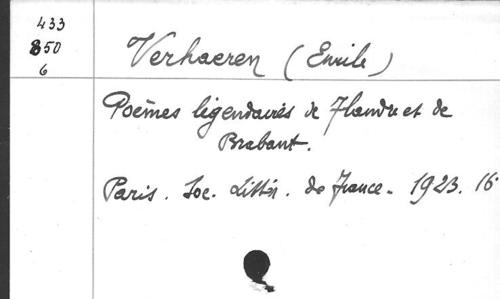 433
850
6
Verhaeren (Emile)
Poèmes légendaires de Flandre et de
Brabant.
Paris. Soc. Littér. de France. 1923. 16